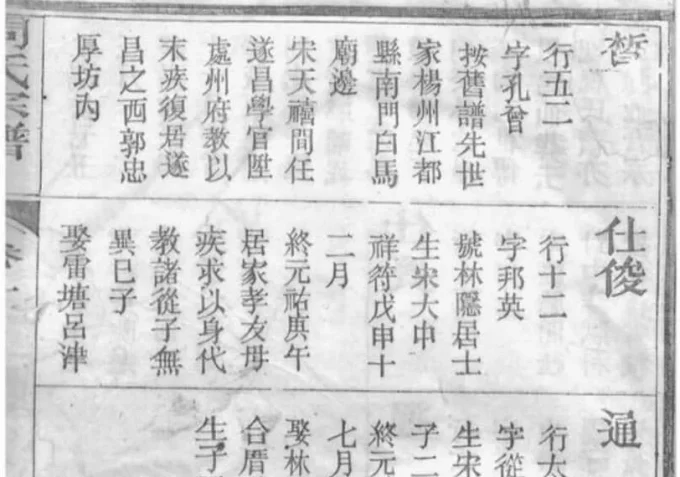 晳
行五二
字孔曾
按舊譜先世
家楊州江都
縣南門白馬
廟邊
宋天禧間任
遂昌學官陞
處州府教以
末疾復居遂
昌之西郭忠
厚坊內
仕俊
行十二
字邦英
號林隱居士
生宋大中
祥符戊申十
二月
終元祐庚午
居家孝友母
疾求以身代
教諸從子無
異已子
娶雷塘呂津
通
行太
字從
生宋
子二
終元
七月
娶林
合厝
生子
氏宗譜
卷一